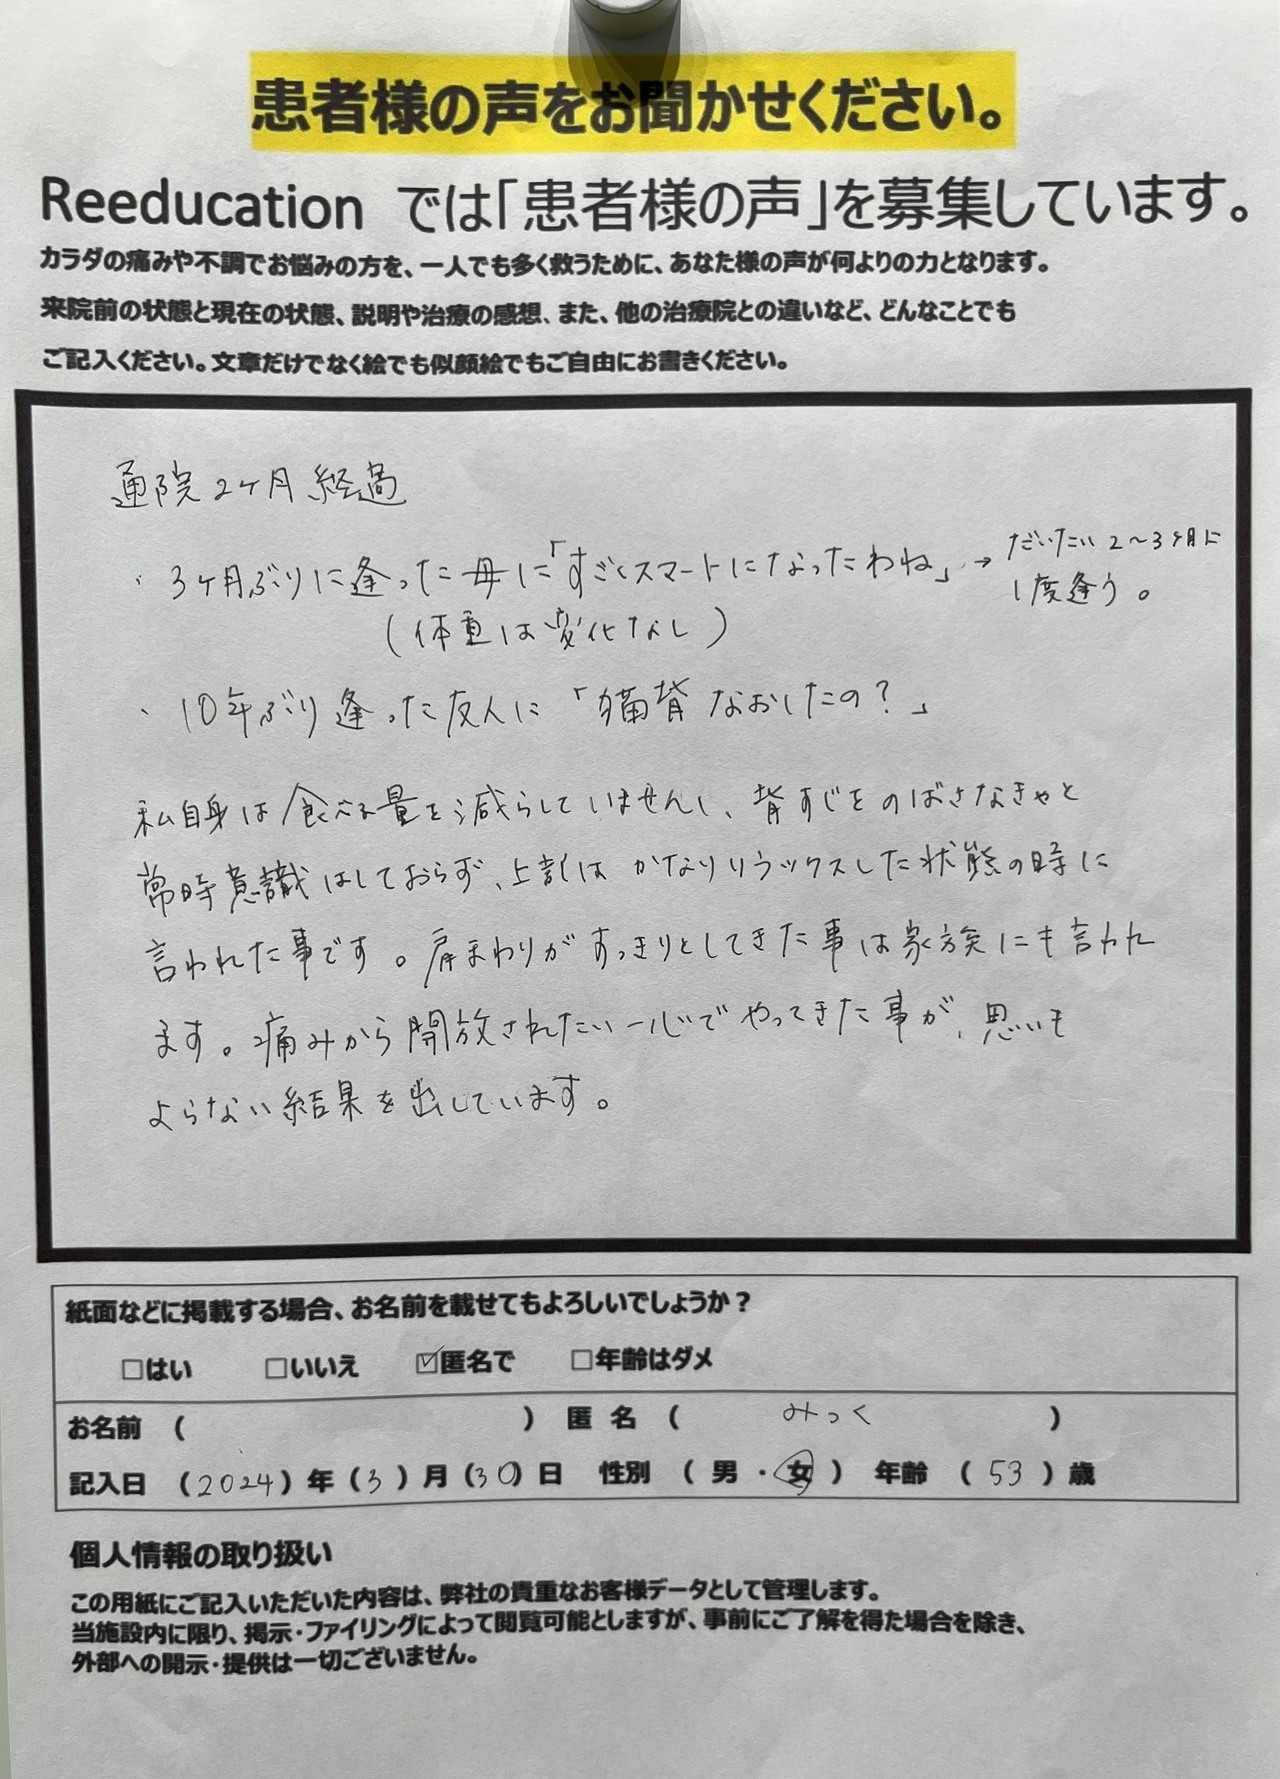 患者様の声をお聞かせください。
Reeducation では「患者様の声」を募集しています。
カラダの痛みや不調でお悩みの方を、一人でも多く救うために、あなた様の声が何よりの力となります。
来院前の状態と現在の状態、説明や治療の感想、また、他の治療院との違いなど、どんなことでも
ご記入ください。文章だけでなく絵でも似顔絵でもご自由にお書きください。
通院2ヶ月経過
・3ヶ月ぶりに逢った母に「すごくスマートになったわね」→だいたい2〜3ヶ月に
1度逢う。
(体重は変化なし)
・10年ぶり逢った友人に「猫背なおしたの?」
私自身は食べる量を減らしていませんし、背すじをのばさなきゃと
常時意識はしておらず、上記はかなりリラックスした状態の時に
言われた事です。肩まわりがすっきりとしてきた事は家族にも言われ
ます。痛みから開放されたい一心でやってきた事が、思いも
よらない結果を出しています。
紙面などに掲載する場合、お名前を載せてもよろしいでしょうか?
□はい □いいえ ☑匿名で □年齢はダメ
お名前 ( ) 匿名 ( みっく )
記入日 (2024)年(3)月(30)日 性別 (男・女) 年齢 (53)歳
個人情報の取り扱い
この用紙にご記入いただいた内容は、弊社の貴重なお客様データとして管理します。
当施設内に限り、掲示・ファイリングによって閲覧可能としますが、事前にご了解を得た場合を除き、
外部への開示・提供は一切ございません。